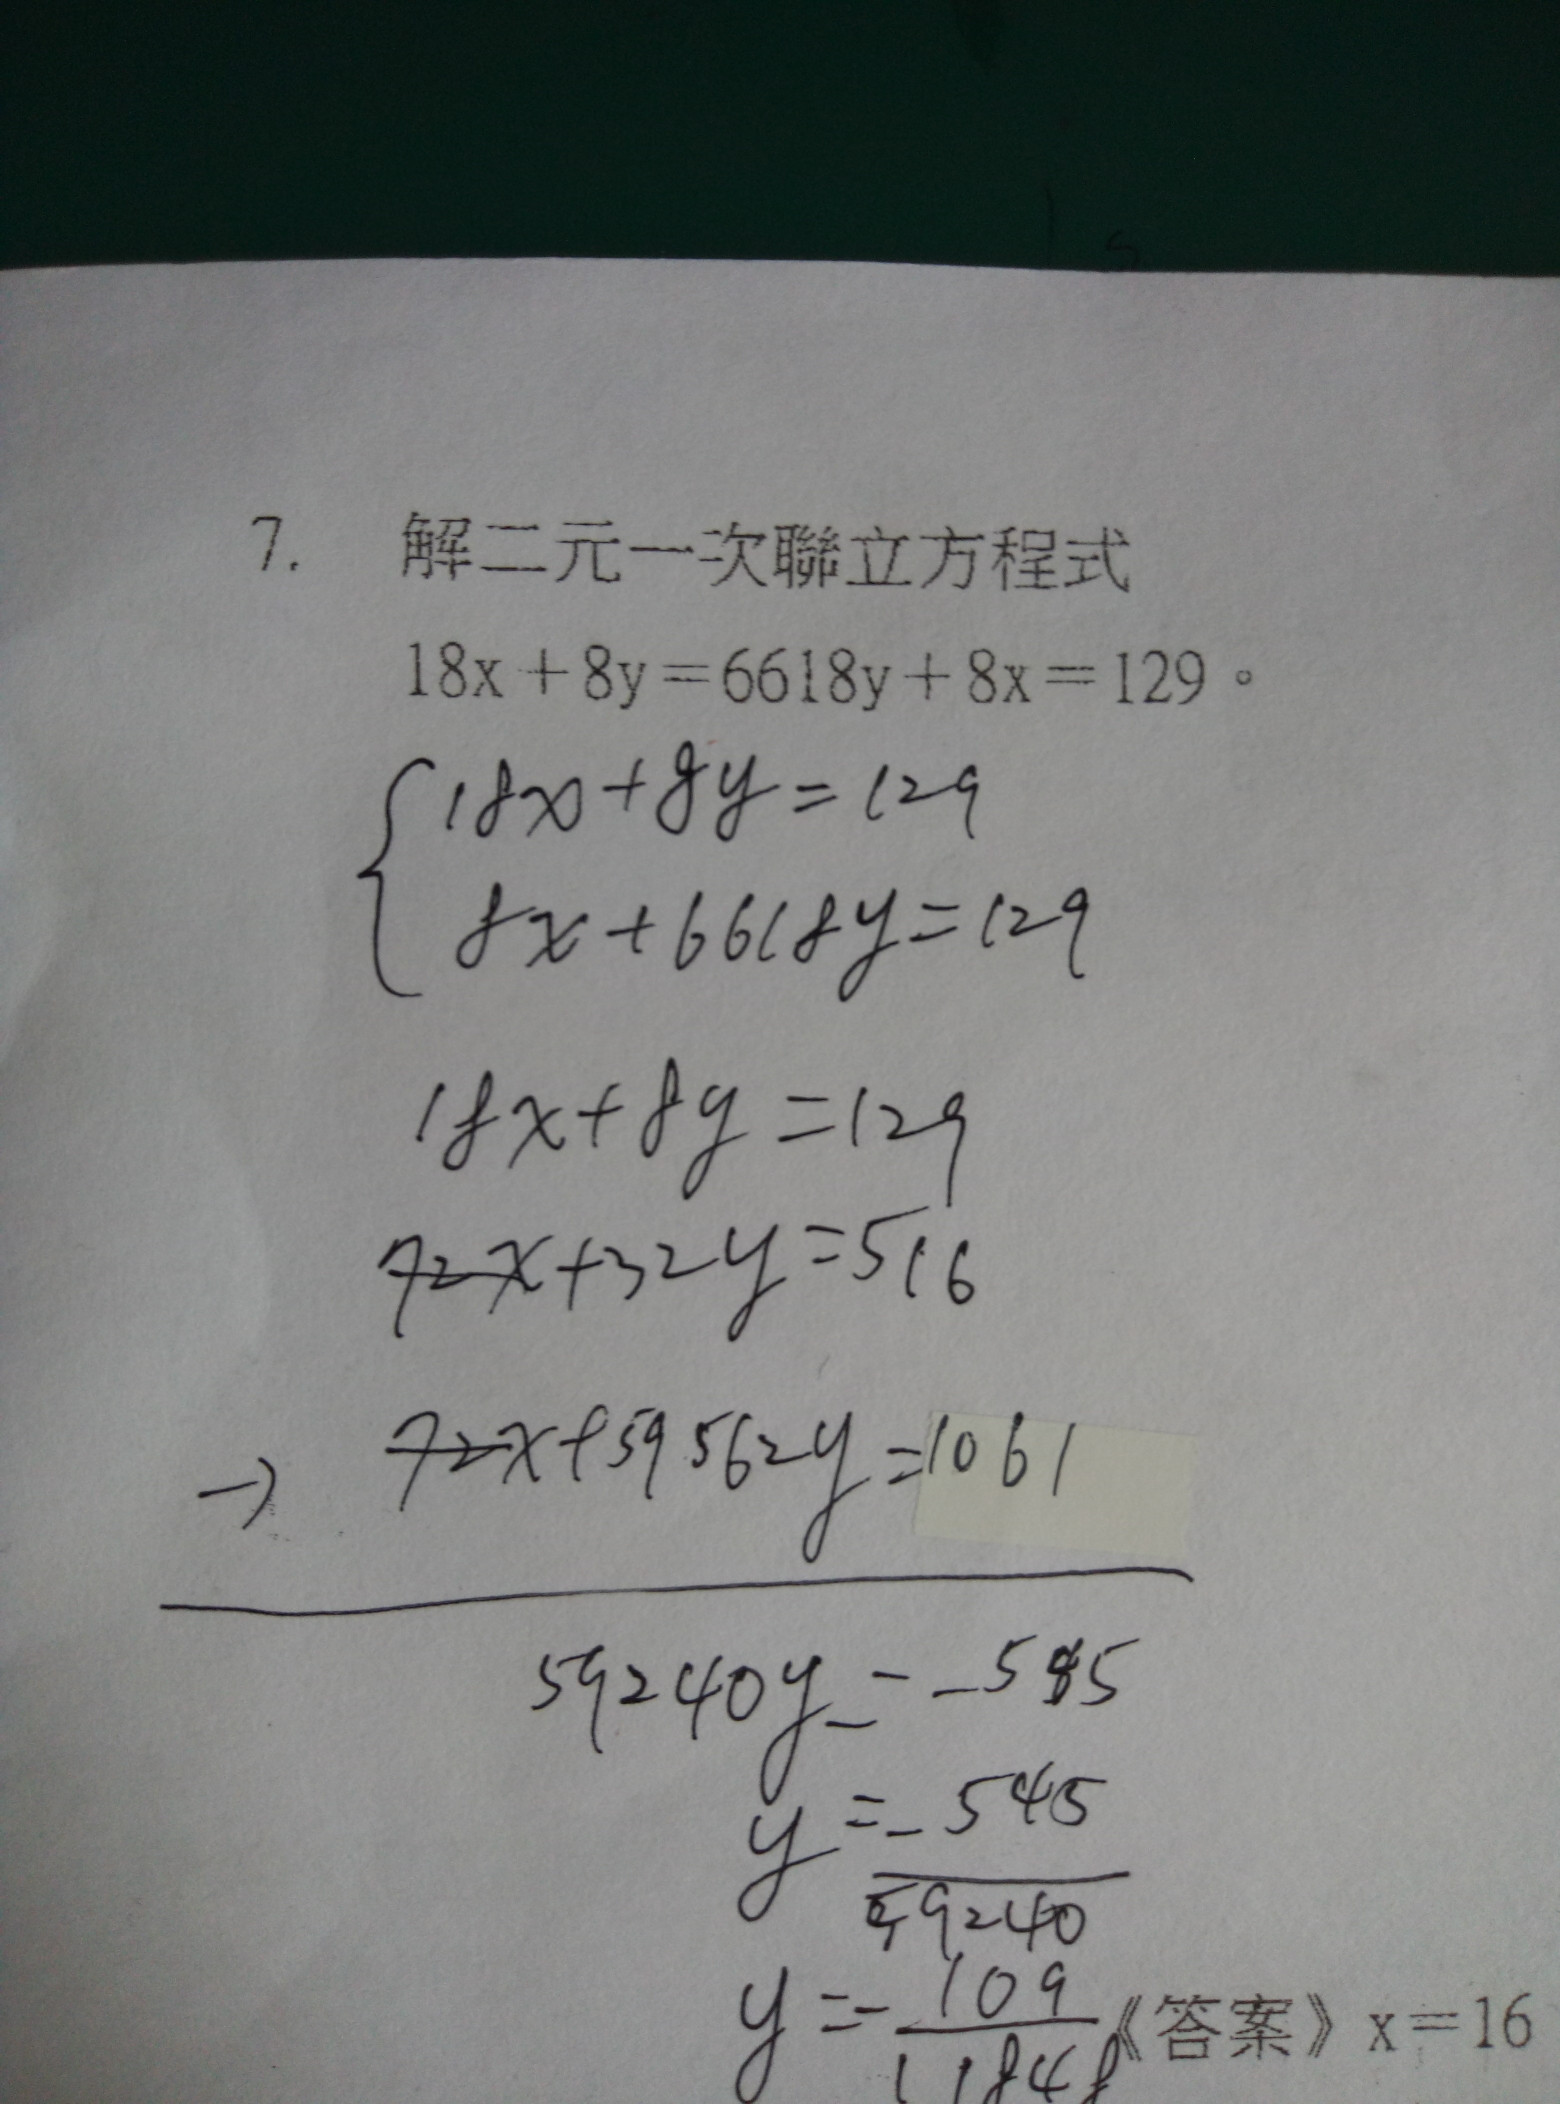 7. 解二元一次聯立方程式
18x+8y=6618y+8x=129。
18x+8y=129
8x+6618y=129
18x+8y=129
72x+32y=516
-) 72x+59562y=1061
59240y=-545
y=-545
59240
y=-109
11848
《答案》x=16